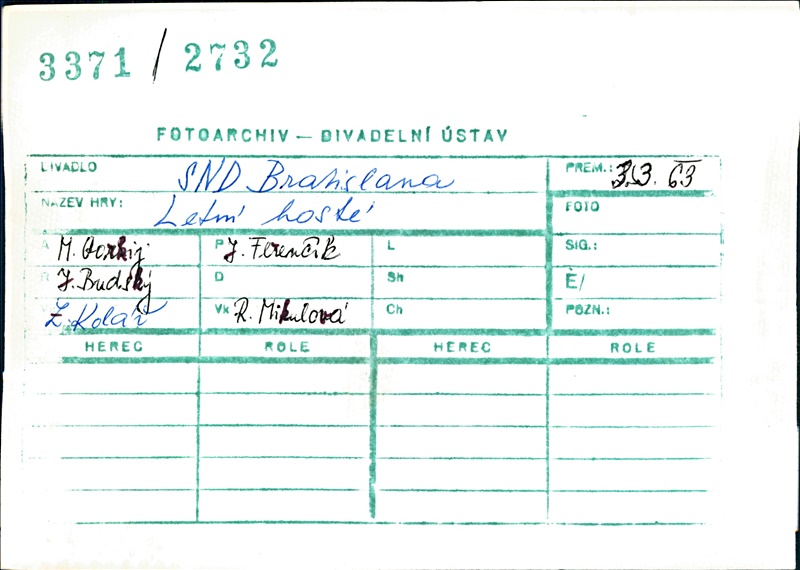 3371 / 2732
FOTOARCHIV — DIVADELNÍ ÚSTAV
DIVADLO SND Bratislava PREM.: 3.3. 63
NÁZEV HRY: Letní hosté FOTO
A M. Gorkij P J. Ferenčík L SIG.:
R J. Budský D Sh Č/
Z. Kolář Vk R. Mikulová Ch POZN.:
HEREC ROLE HEREC ROLE